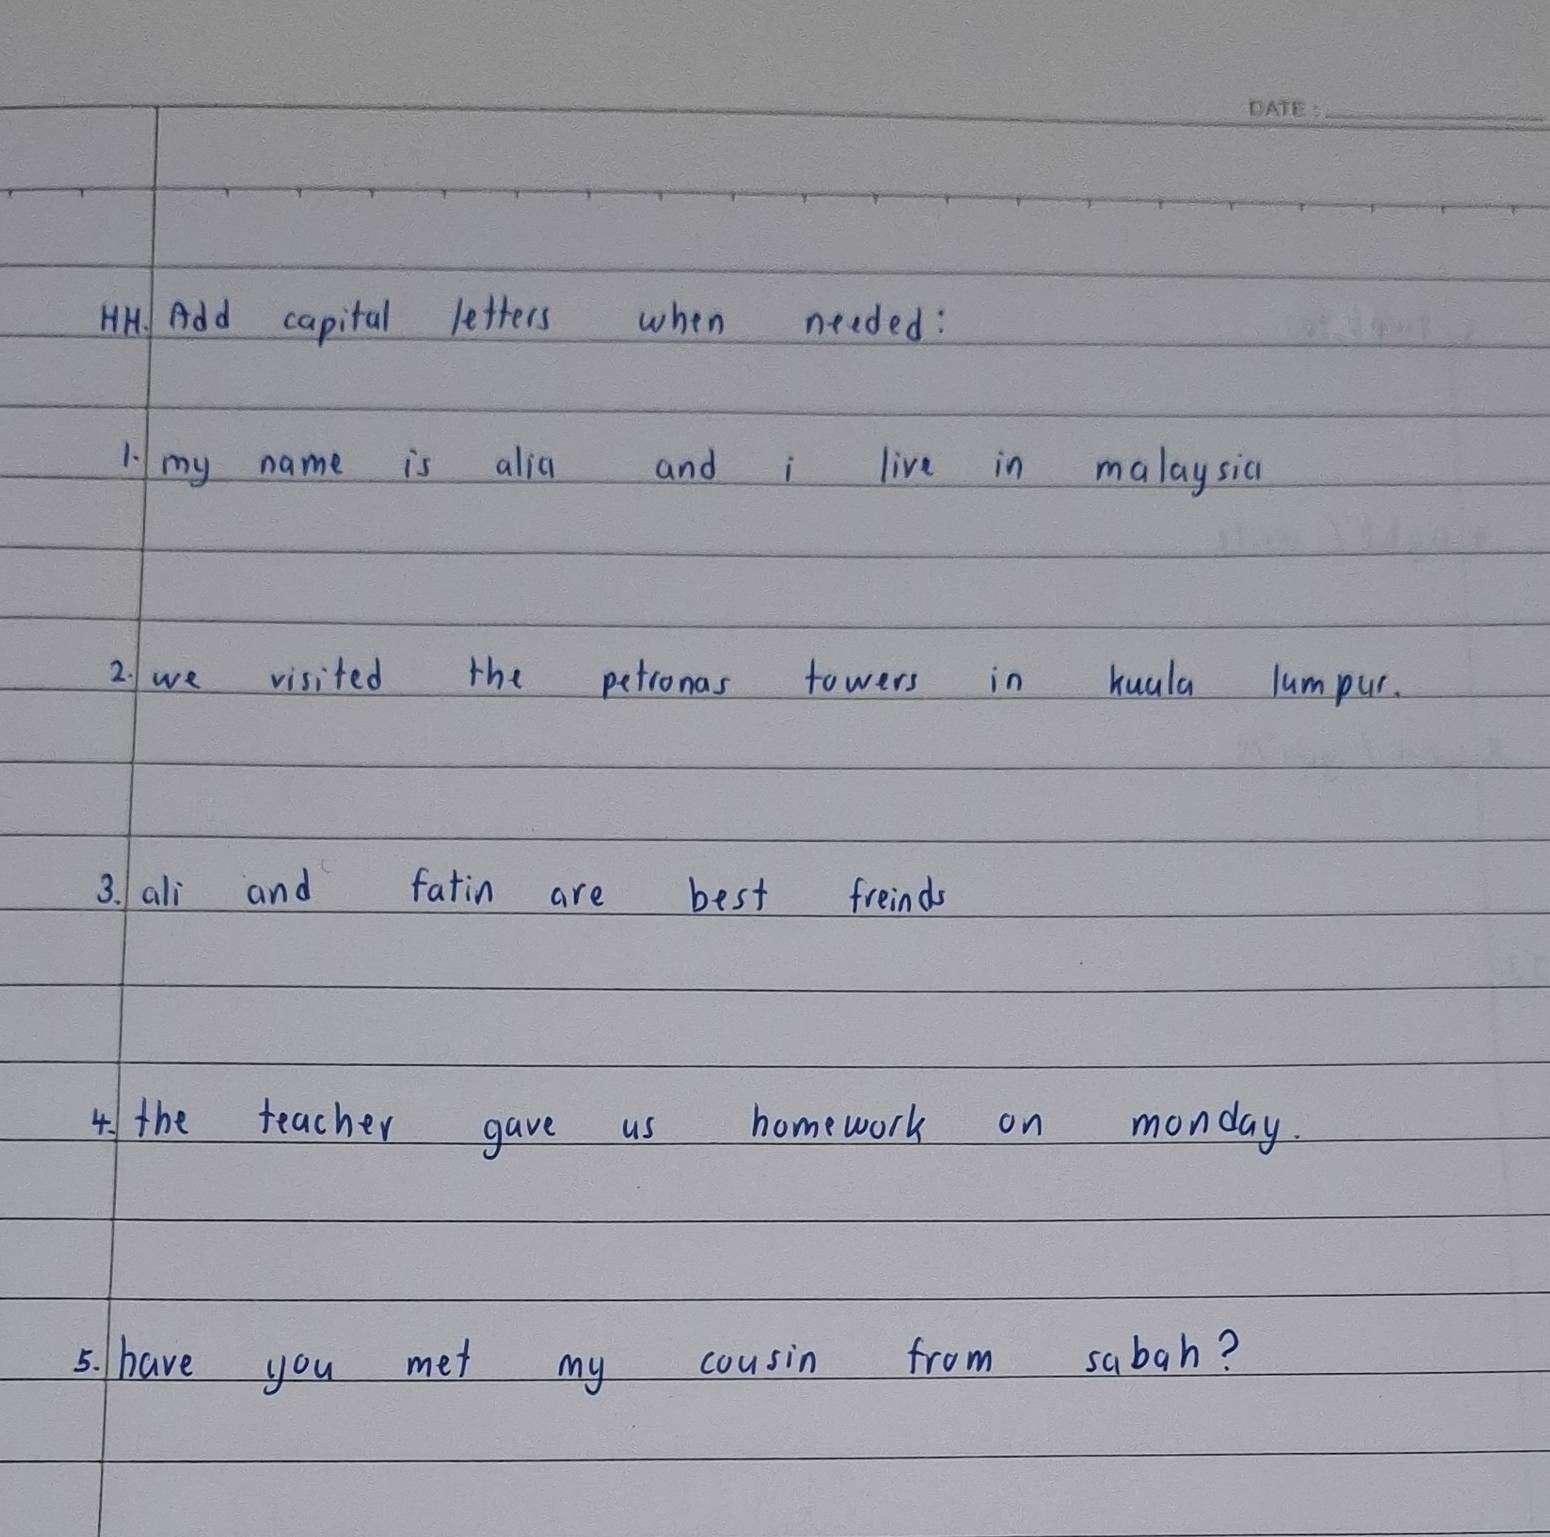 DATE:
HH. Add capital letters when needed:
1. my name is alia and i live in malaysia
2. we visited the petronas towers in kuala lumpur.
3. ali and fatin are best freinds
4. the teacher gave us homework on monday.
5. have you met my cousin from sabah?